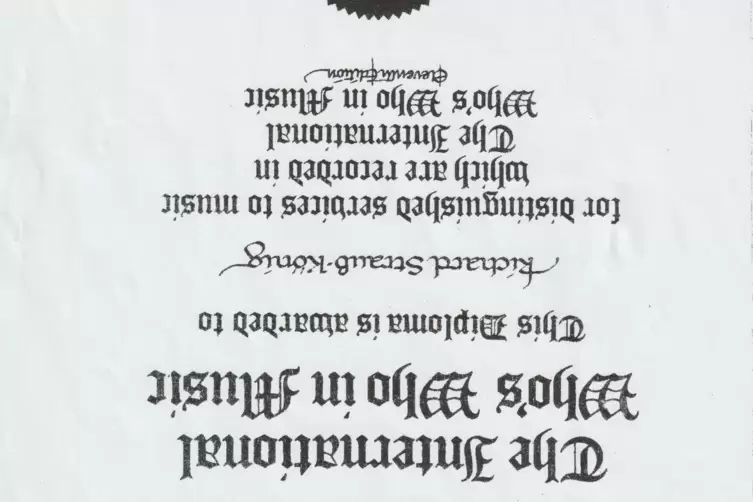 The International
Who's Who in Music
This Diploma is awarded to
Richard Strauß-König
for distinguished services to music
which are recorded in
The International
Who's Who in Music
Eleventh Edition